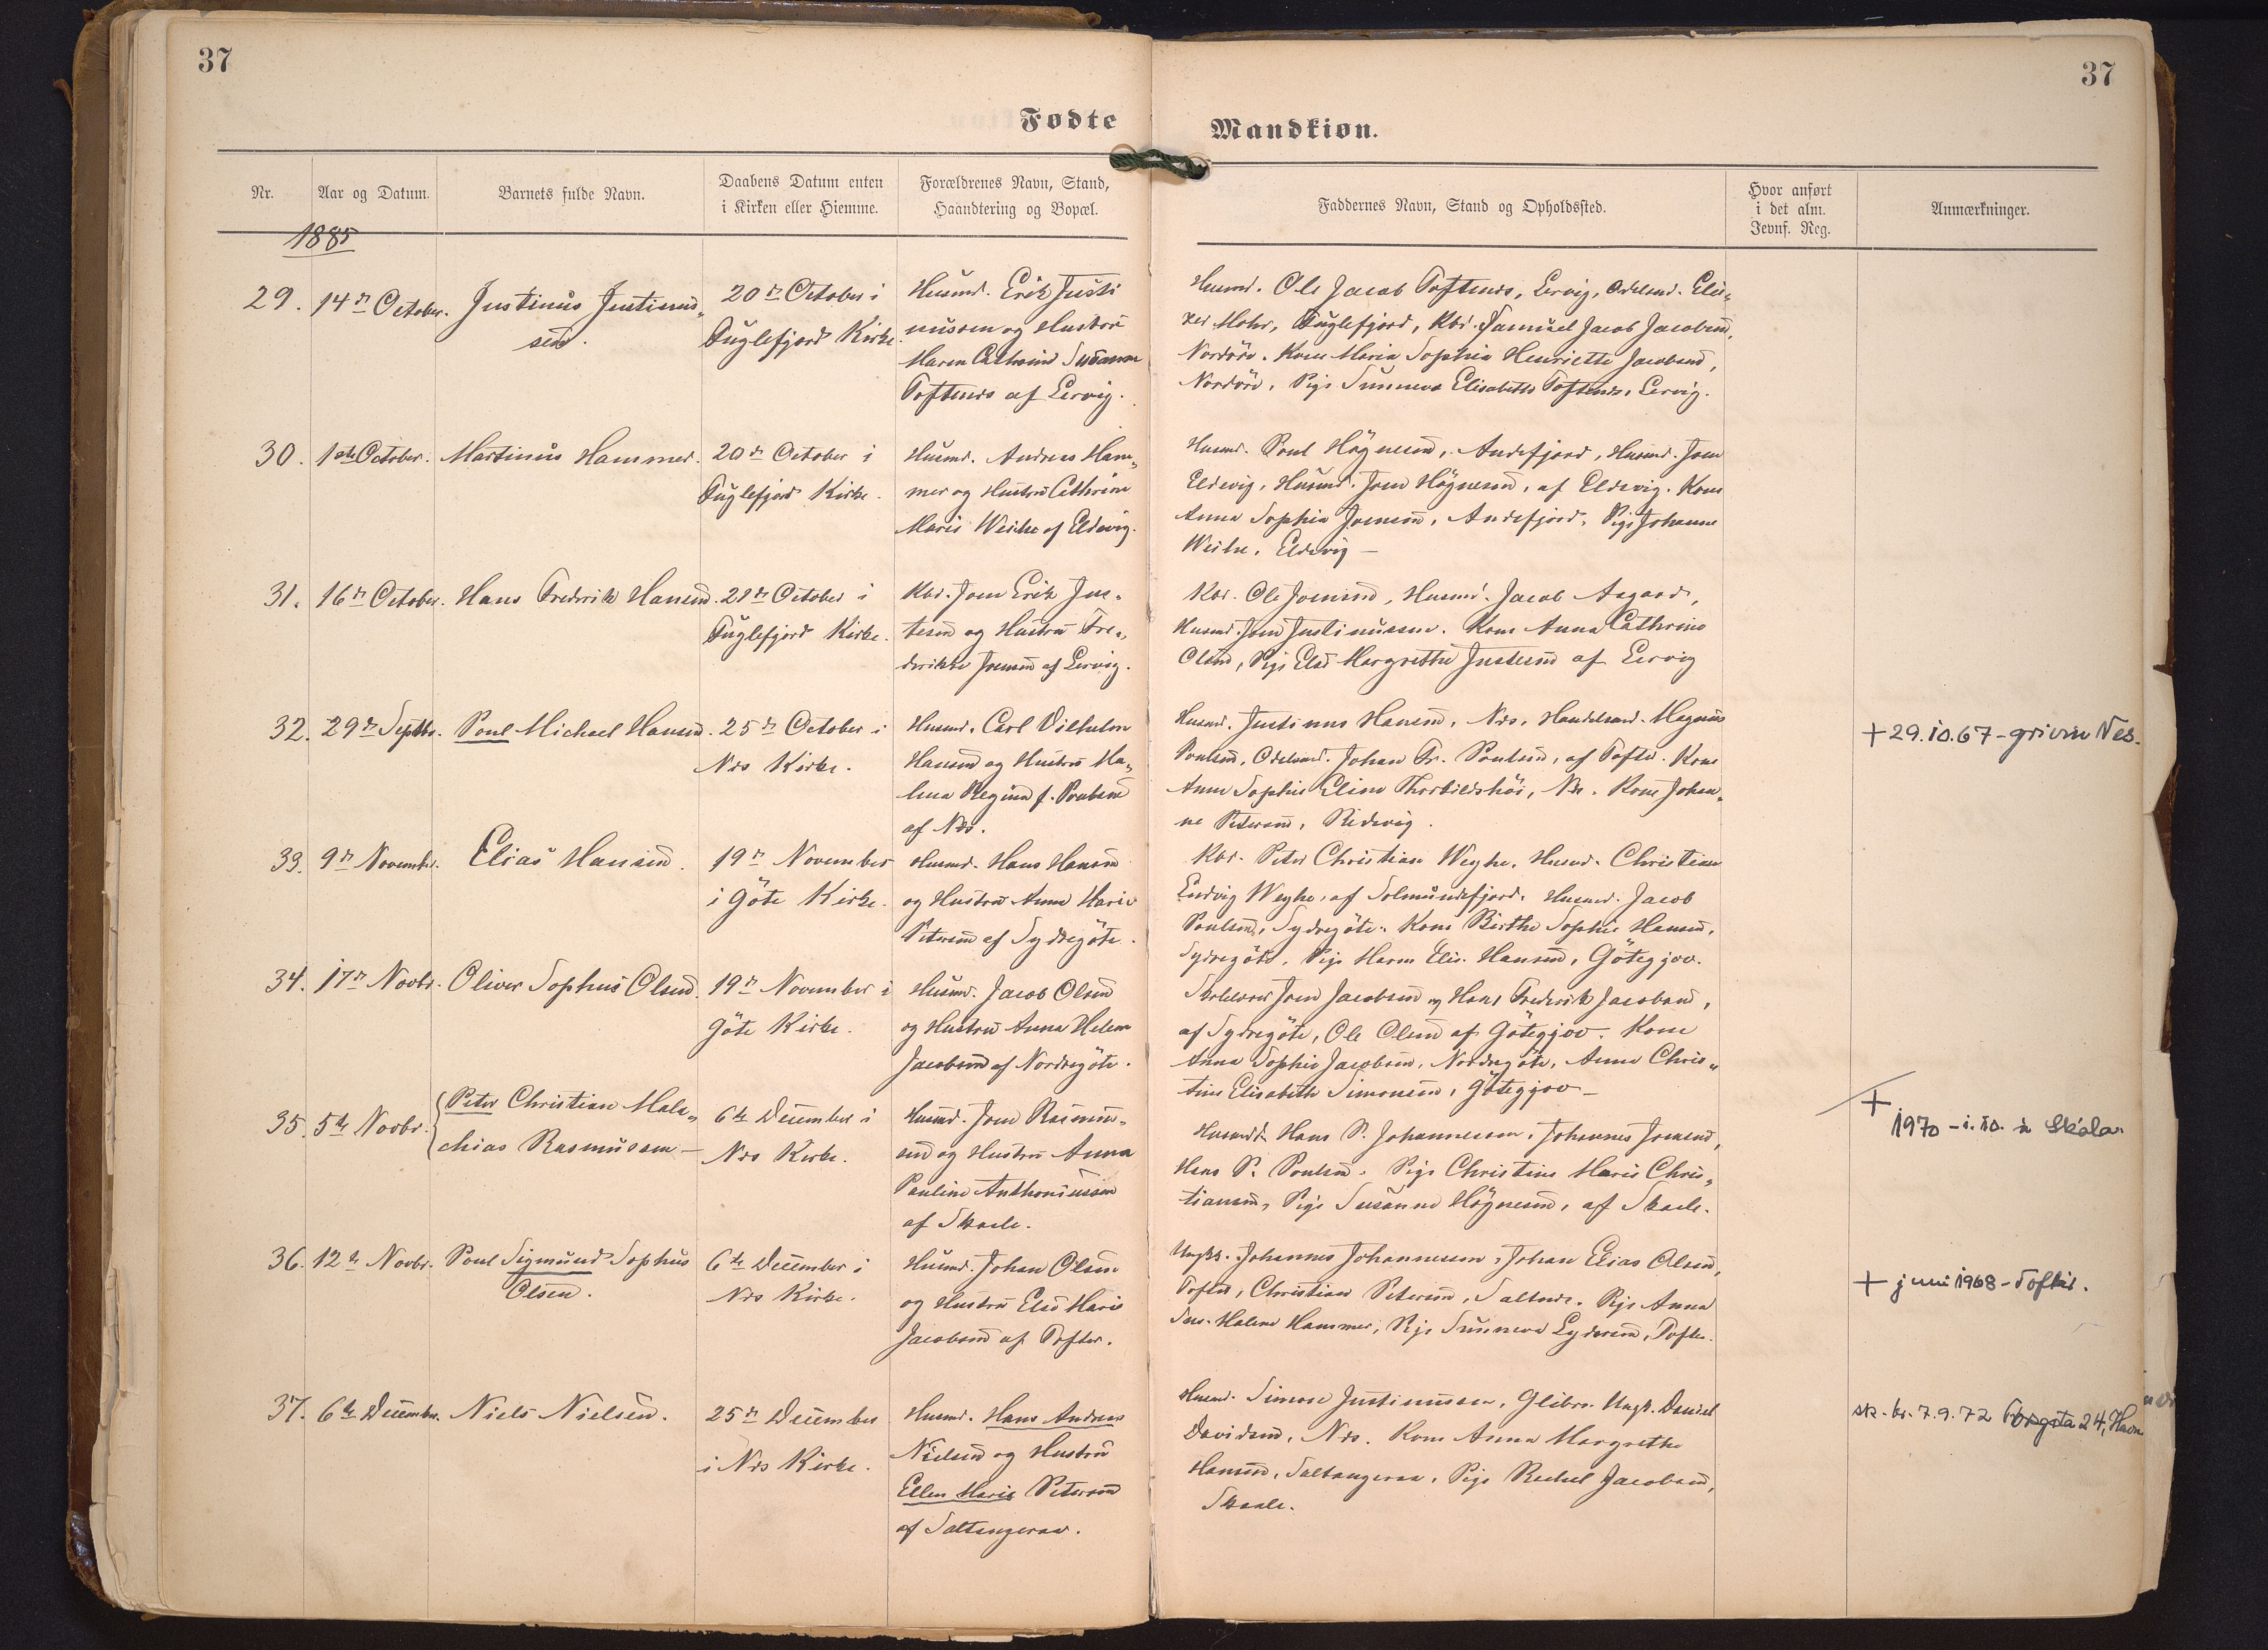 37
37
Fødte
Mandkiøn.
Nr.
Aar og Datum.
Barnets fulde Navn.
Daabens Datum enten
i Kirken eller Hiemme.
Forældrenes Navn, Stand,
Haandtering og Bopæl.
Faddernes Navn, Stand og Opholdssted.
Hvor anført
i det alm.
Jevnf. Reg.
Anmærkninger.
1885
29.
14de October.
Justinus Justinus„
sen.
20de October i
Fuglefjord Kirke.
Husmd. Erik Justi
nussen og Hustru
Maren Cathrine Susanne
Toftenes af Lervig.
Husmd. Ole Jacob Toftenes, Lervig,
Mohr, Fuglefjord, Kbr. Samuel Jacob Jacobsen,
Nordöre. Kone Maria Sophie Henriette Jacobsen,
Nordöre, Pige Sunneva Elisabeth Toftenes, Lervig.
30.
1ste October.
Martinus Hammer.
20de October i
Fuglefjord Kirke.
Husmd. Andreas Ham„
mer og Hustru Cathrine
Marie Weihe af Eldevig.
Husmd. Poul Högnesen, Andefjord, Husmd. Joen
Eldevig, Husmd. Joen Högnesen, af Eldevig. Kone
Anna Sophie Joensen, Andefjord, Pige Johanne
Weihe, Eldevig —
31.
16de October.
Hans Frederik Hansen.
21de October i
Fuglefjord Kirke.
Kbr. Joen Erik Jus„
tesen og Hustru Fre„
derikke Joensen af Lervig.
Kbr. Ole Joensen, Husmd. Jacob Aagaard,
Husmd. Joen Justinussen. Kone Anna Cathrine
Olsen, Pige Else Margrethe Justesen af Lervig
32.
29de Septbr.
Poul Michael Hansen.
25de October i
Nes Kirke.
Husmd. Carl Vilhelm
Hansen og Hustru Ma„
lena Regina f. Poulsen
af Nes.
Husmd. Justinus Hansen, Nes, Handelsmd. Magnus
Poulsen, Odelsmd. Johan Fr. Poulsen, af Tofte. Kone
Anne Sophie Elina Thorkildshöi, Nes. Kone Johan„
ne Petersen, Ridevig.
+ 29.10.67 - grivin Nes.
33.
9de Novembr.
Elias Hansen.
19de November
i Göte Kirke.
Husmd. Hans Hansen
og Hustru Anna Marie
Petersen af Sydregöte.
Kbr. Peter Christian Weyhe, Husmd. Christian
Ludvig Weyhe, af Solmundefjord. Husmd. Jacob
Poulsen, Sydregöte. Kone Birthe Sophie Hansen,
Sydregöte, Pige Maren Elis. Hansen, Götegjov.
34.
17de Novbr.
Oliver Sophus Olsen.
19de November i
Göte Kirke.
Husmd. Jacob Olsen
og Hustru Anna Helene
Jacobsen af Nordregöte.
Joen Jacobsen og Hans Frederik Jacobsen,
af Sydregöte, Ole Olsen af Götegjov. Kone
Anna Sophie Jacobsen, Nordregöte, Anna Chris„
tine Elisabeth Simonsen, Götegjov —
35.
5te Novbr.
Peter Christian Mala„
chias Rasmussen —
6te December i
Nes Kirke.
Husmd. Joen Rasmus„
sen og Hustru Anna
Pauline Anthoniussen
af Skaale.
Husmd. Hans P. Johannessen, Johannes Joensen,
Hans P. Poulsen. Pige Christine Marie Chris„
tiansen, Pige Susanne Högnesen, af Skaale.
+
1970 - i. 10. à Skála.
36.
12te Novbr.
Poul Sigmund Sophus
Olsen.
6te December i
Nes Kirke.
Husmd. Johan Olsen
og Hustru Else Marie
Jacobsen af Tofter.
Ungk. Johannes Johannessen, Johan Elias Olsen,
Tofter, Christian Petersen, Saltnes. Pige Anna
Sus. Malene Hammer, Pige Sunneva Lydersen, Tofte.
+ juni 1968 - Toftir.
37.
6te December.
Niels Nielsen.
25de December
i Nes Kirke.
Husmd. Hans Andreas
Nielsen og Hustru
Ellen Marie Petersen
af Saltangeraa.
Husmd. Simon Justinussen, Glibre. Ungk. Daniel
Davidsen, Nes. Kone Anna Margrethe
Hansen, Saltangeraa, Pige Rachel Jacobsen,
Skaale.
sk. br. 7.9.72 24, Havn